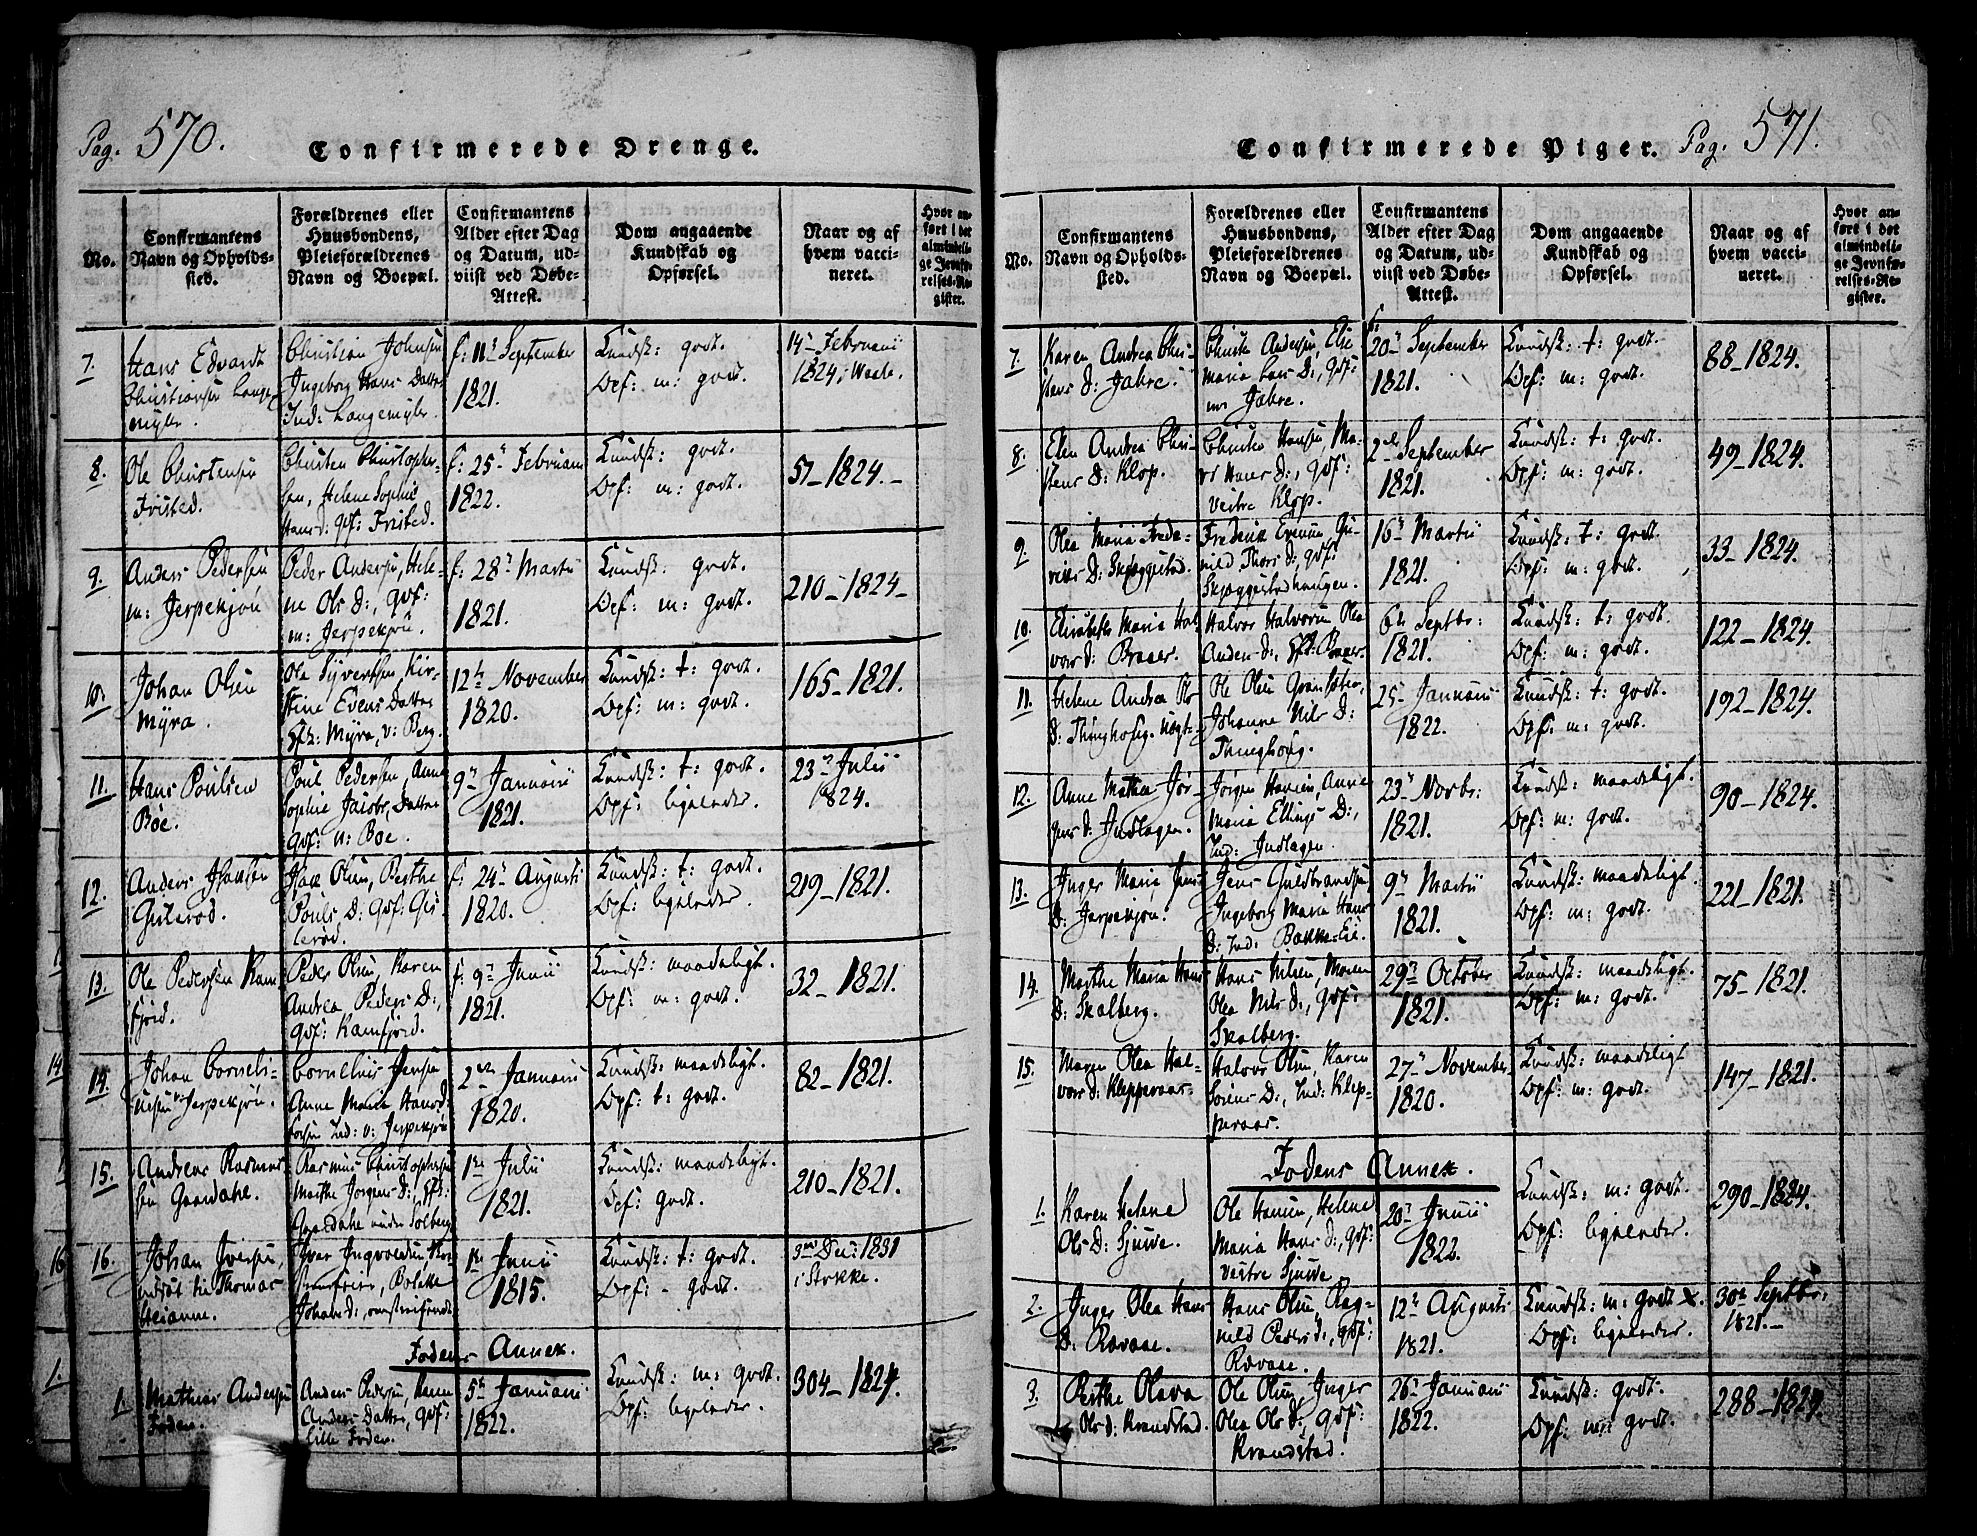 Pag. 570.
Confirmerede Drenge.
No.
Confirmantens
Navn og Opholds-
sted.
Forældrenes eller
Huusbondens,
Pleieforældrenes
Navn og Boepæl.
Confirmantens
Alder efter Dag
og Datum, ud-
viist ved Døbe-
Attest.
Dom angaaende
Kundskab og
Opførsel.
Naar og af
hvem vacci-
neret.
Hvor an-
ført i det
almindeli-
ge Jevnfø-
relses-Re-
gister.
7.
Hans Edvardt
Christiansen Lange-
myhr.
Christian Johnsen
Ingeborg Hans Datter
Ind: Langemyhr.
f: 11t September
1821.
Kundsk: godt.
Opf: m: godt.
14t Februarii
1824, i Waale.
8.
Ole Christensen
Fristed.
Christen Christopher-
sen, Helene Sophie
Hans d: gdf: Fristed.
f: 25t Februarii
1822.
Kundsk: godt.
Opf: m: godt.
57-1824.-
9.
Anders Pedersen
m: Jerpekjøn
Peder Andersen, Hele-
ne Ols D:, gdf:
m: Jerpekjøn.
f: 28t Martii
1821.
Kundsk: godt.
Opf: m: godt.
210-1824-
10.
Johan Olsen
Myra.
Ole Syvertsen, Kir-
stine Evens Datter
Myra, v: Berg.
12te November
1820.
Kundsk: t: godt.
Opf: m: godt.
165-1821.
11.
Hans Poulsen
Böe.
Poul Pedersen, Anne
Sophie Jacobs Datter
gdf: n: Böe.
9de Januarii
1821.
Kundsk: t: godt.
Opf: ligeleder.
23de Julii
1824.
12.
Anders Hansen
Gislerød.
Hans Olsen, Berthe
Pouls D: gdf: Gis-
lerød.
f: 24t Augusti
1820.
Kundsk: t: godt.
Opf: ligeleder.
219-1821.
13.
Ole Pedersen Ram
fjord.
Peder Olsen, Karen
Andrea Peders D:,
gdf: Ramfjord.
f: 9de Junii
1821.
Kundsk: maadeligt.
Opf: m: godt.
32-1821.
14.
Johan Corneli-
usen v: Jerpekjøn.
Cornelius Jensen
Anne Marie Hans d:
Ind: v: Jerpekjøn
2den Januarii
1820.
Kundsk: maadeligt.
Opf: t: godt.
82-1821.
15.
Andreas Rasmus
sen Gaardahl.
Rasmus Christophersen
Marthe Jørgens D:,
under Solberg
1ste Julii
1821.
Kundsk: maadeligt.
Opf: godt.
210-1821.
16.
Johan Iversen,
til Thomas
Iver Ingvoldsen,
Johans d:, omstreifende
1ste Junii
1815.
Kundsk: t: godt.
Opf: - godt.
3die Deci 1831
i Stokke.
Fodens Annex.
1.
Mathias Andersen
Foden.
Anders Pedersen, Karen
Anders Datter, gdf:
Lille Foden.
5te Januarii
1822.
Kundsk: m: godt.
Opf: ligeleder.
304-1824.
Confirmerede Piger. Pag. 571.
No.
Confirmantens
Navn og Opholds-
sted.
Forældrenes eller
Huusbondens,
Pleieforældrenes
Navn og Boepæl.
Confirmantens
Alder efter Dag
og Datum, ud-
viist ved Døbe-
Attest.
Dom angaaende
Kundskab og
Opførsel.
Naar og af
hvem vacci-
neret.
Hvor an-
ført i det
almindeli-
ge Jevnfø-
relses-Re-
gister.
7.
Karen Andrea Chri-
stens D: Jahre.
Christen Andersen, Else
Maria Lars D:, gdf:
Jahre.
f:
20t September
1821.
Kundsk: t: godt.
Opf: m: godt.
88-1824.
8.
Elen Andrea Chri-
stens D: Klop.
Christen Hansen, Ma-
ri Hans D:, gdf:
Vestre Klop.
2den September
1821.
Kundsk: t: godt.
Opf: m: godt.
49-1824.
9.
Olea Maria Frede-
riks D: Skjæggestad.
Frederik Evensen, Gu-
nild Thors D: gdf:
Skjæggestadhaugen.
16t Martii
1821.
Kundsk: t: godt.
Opf: m: godt.
33-1824.
10.
Elisabeth Maria Hal-
vors d: Braaer.
Halvor Halvorsen Olea
Anders D:, Braaer.
6te Septbr:
1821.
Kundsk: t: godt.
Opf: m: godt.
122-1824.
11.
Helene Andrea Ols
D: Thinghoug.
Ole Olsen
Johanne Nils D:
Thinghoug.
25t Januarii
1822.
Kundsk: t: godt.
Opf: m: godt.
192-1824.
12.
Anne Mathea Jør-
gens d: Indlagen.
Jørgen Hansen, Anne
Maria Ellings D:,
Ind: Indlagen.
23t Novbr:
1821.
Kundsk: maadeligt.
Opf: m: godt.
90-1824.
13.
Inger Maria Jens
D: Jerpekjøn.
Jens Guldbrandsen,
Ingeborg Maria Hans
D: Ind: Bakke-Eie.
9de Martii
1821.
Kundsk: maadeligt.
Opf: m: godt.
221-1821.
14.
Marthe Maria Hans
D: Skalberg.
Hans Nilsen, Maren
Olea Nils D:, gdf:
Skalberg.
29de October
1821.
Kundsk: maadeligt.
Opf: m: godt.
75-1821.
15.
Maren Olea Hal-
vors d: Kleppevaar.
Halvor Olsen, Karen
Sörens D:, Ind: Klep-
pevaar.
27t November
1820.
Kundsk: maadeligt
Opf: m: godt.
147-1821.
Fodens Annex.
1.
Karen Helene
Ols D: Sjuve.
Ole Hansen, Helene
Maria Hans D:, gdf:
Vestre Sjuve
20de Junii
1822.
Kundsk: m: godt.
Opf: ligeleder.
290-1824.
2.
Inger Olea Hans
D: Ravaae.
Hans Olsen Rag-
nild Peders D:, gdf:
Ravaae.
12te Augusti
1821.
Kundsk: m: godt x.
Opf: ligeleder.
30te Septbr.
1821.-
3.
Berthe Olava
Ols d: Krandstad.
Ole Olsen, Inger
Olea Ols D:, gdf:
Krandstad.
26t Januarii
1822.
Kundsk: godt.
Opf: m: godt.
288-1824.